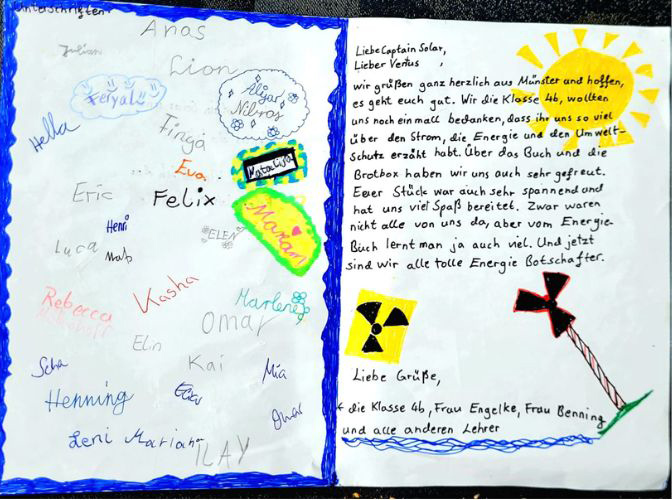 Unterschriften:
Anas
Julian
Lion
Feryal
Nibras
Hella
Finja
Eva
Eric
Felix
Maxan
Henri
ELEN
Luca
Mats
Rebecca
Kasha
Marlene
Omar
Elin
Kai
Mia
Henning
Leni Mariann
ILAY
Liebe Captain Solar,
Lieber Ventus,
wir grüßen ganz herzlich aus Münster und hoffen,
es geht euch gut. Wir die Klasse 4b, wollten
uns noch ein mall bedanken, dass ihr uns so viel
über den Strom, die Energie und den Umwelt-
schutz erzält habt. Über das Buch und die
Brotbox haben wir uns auch sehr gefreut.
Euer Stück war auch sehr spannend und
hat uns viel Spaß bereitet. Zwar waren
nicht alle von uns da, aber vom Energie-
Buch lernt man ja auch viel. Und jetzt
sind wir alle tolle Energie Botschafter.
Liebe Grüße,
die Klasse 4b, Frau Engelke, Frau Benning
und alle anderen Lehrer